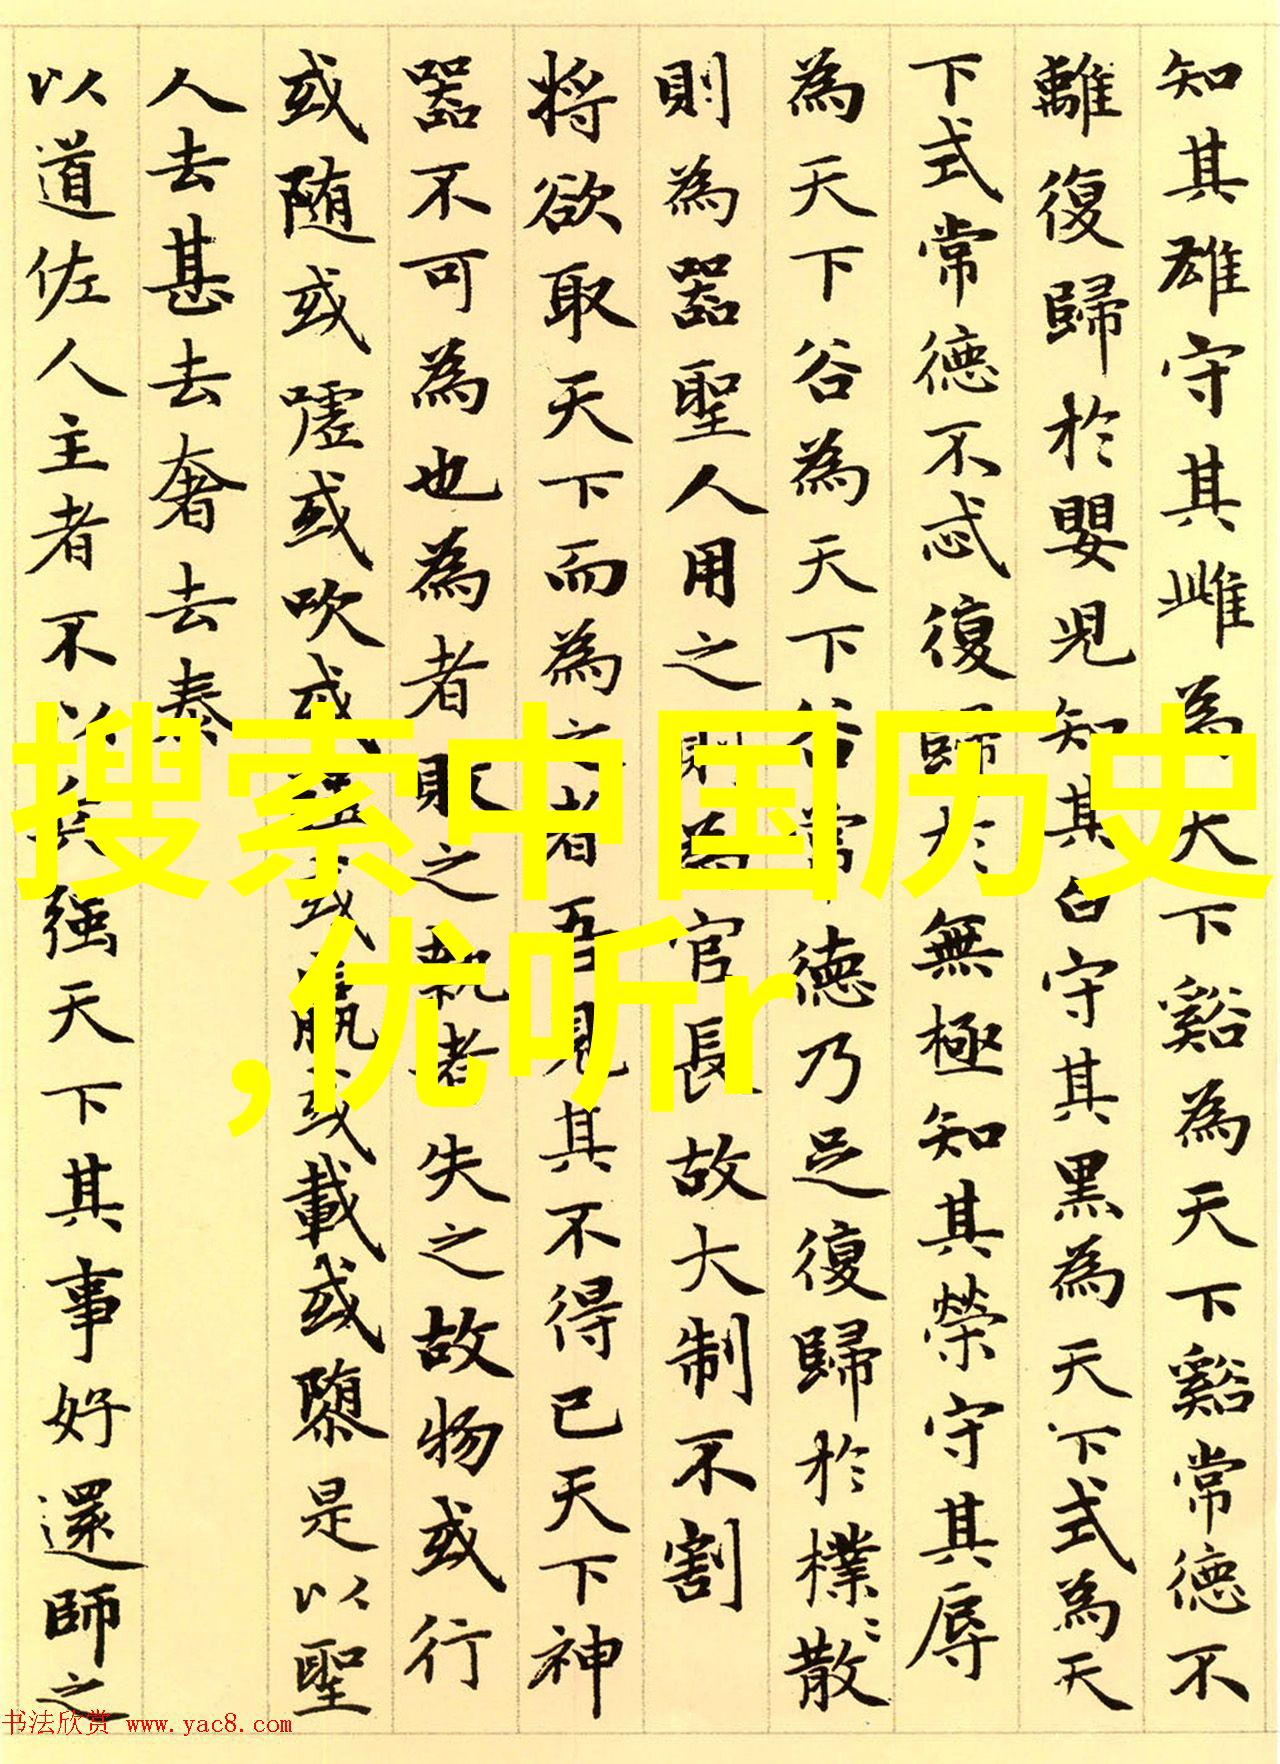 知其雄守其雌為天下谿為天下谿常德不
離復歸於嬰兒知其白守其黑為天下式為天
下式常德不忒復歸於無極知其榮守其辱
為天下谷為天下谷常德乃足復歸於樸〻散
則為器聖人用之則為官長故大制不割
将欲取天下而為之者吾見其不得已天下神
器不可為也為者敗之執者失之故物或行
或随或噓或吹或強或羸或載或隳是以聖
人去甚去奢去泰
以道佐人主者不以兵强天下其事好還師之
搜索中国历史
,优听r
书法欣赏 www.yac8.com